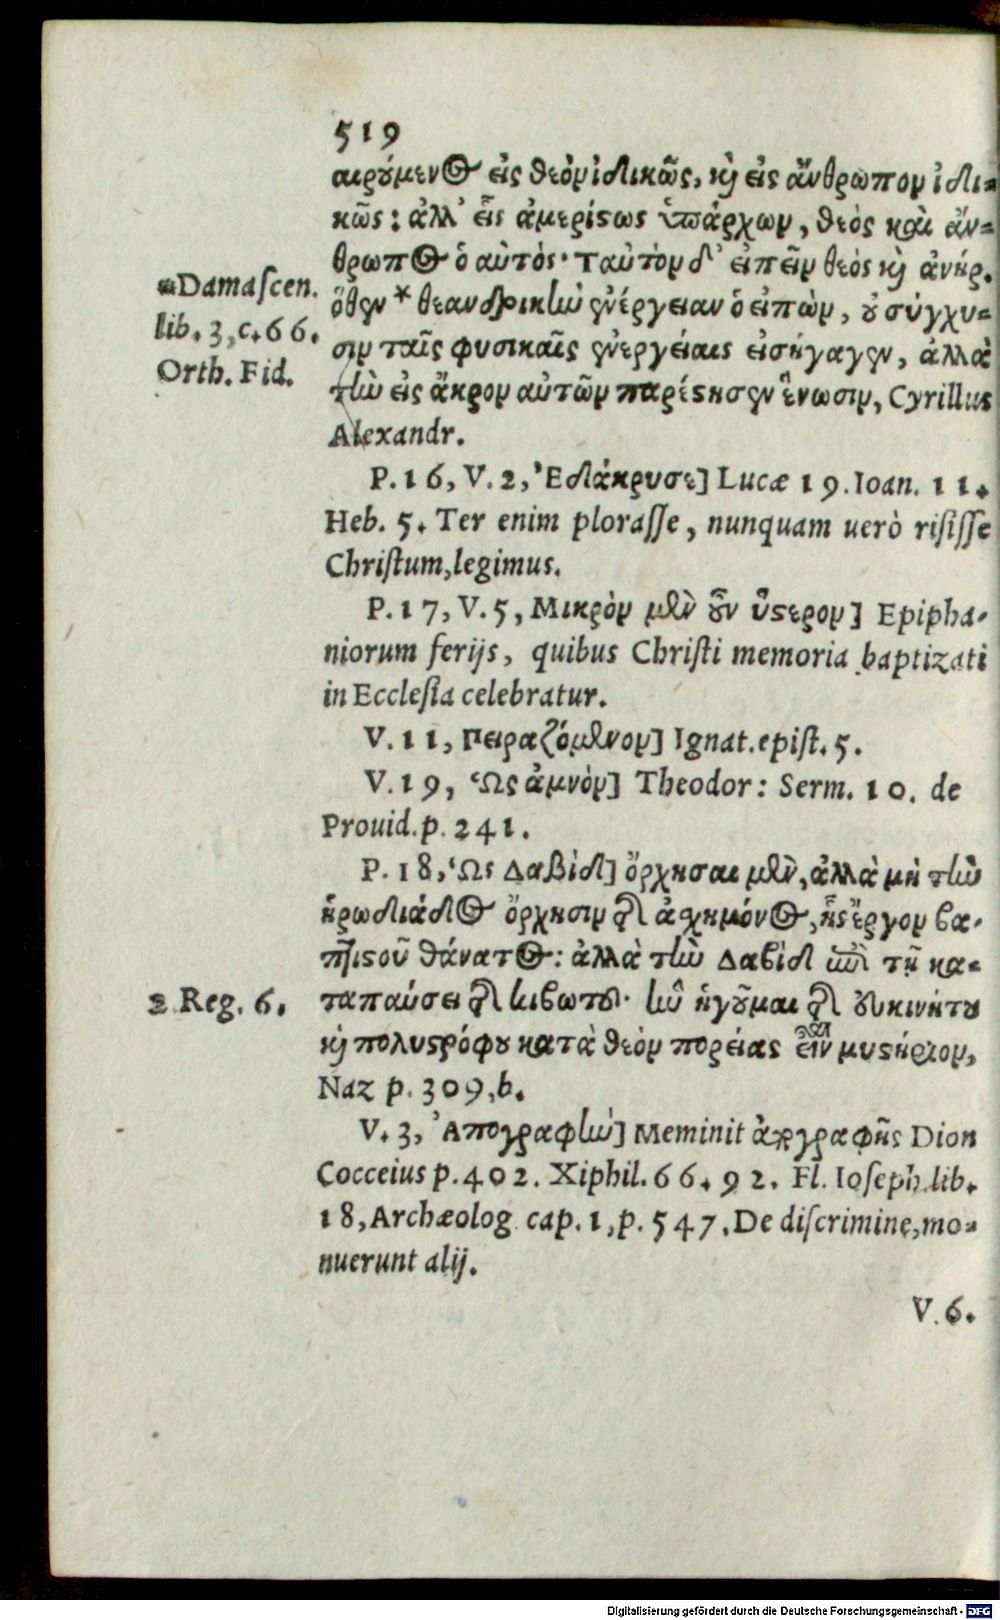 519
αιρούμενος εἰς θεὸν ἰδικῶς, καὶ εἰς ἄνθρωπον ἰδι-
κῶς: ἀλλ' εἷς ἀμερίστως ὑπάρχων, θεὸς καὶ ἄν-
θρωπος ὁ αὐτός· ταὐτὸν δ' εἰπεῖν θεὸς καὶ ἀνήρ.
*Damaſcen.
ὅθεν * θεανδρικὴν ἐνέργειαν ὁ εἰπὼν, οὐ σύγχυ-
lib. 3, c. 66.
σιν ταῖς φυσικαῖς ἐνεργείαις εἰσήγαγεν, ἀλλὰ
Orth. Fid.
τὴν εἰς ἄκρον αὐτῶν παρέστησεν ἕνωσιν, Cyrillus
Alexandr.
P. 16, V. 2, Ἐδάκρυσε] Lucæ 19. Ioan. 11.
Heb. 5. Ter enim ploraſſe, nunquam uerò riſiſſe
Chriſtum, legimus.
P. 17, V. 5, Μικρὸν μὲν οὖν ὕστερον] Epipha-
niorum ferijs, quibus Chriſti memoria baptizati
in Eccleſia celebratur.
V. 11, Πειραζόμενον] Ignat. epiſt. 5.
V. 19, Ὡς ἀμνὸν] Theodor: Serm. 10. de
Prouid. p. 241.
P. 18, Ὡς Δαβὶδ] ὄρχησαι μὲν, ἀλλὰ μὴ τὴν
ἡρωδιάδος ὄρχησιν τῆς ἀσχημόνος, ἧς ἔργον βα-
πτιστοῦ θάνατος: ἀλλὰ τὴν Δαβὶδ ἐπὶ τῇ κα-
2 Reg. 6.
ταπαύσει τῆς κιβωτοῦ· ἣν ἡγοῦμαι τῆς εὐκινήτου
καὶ πολυστρόφου κατὰ θεὸν πορείας εἶναι μυστήριον,
Naz p. 309, b.
V. 3, Ἀπογραφὴν] Meminit ἀπογραφῆς Dion
Cocceius p. 402. Xiphil. 66. 92. Fl. Ioſeph lib.
18, Archæolog cap. 1, p. 547, De diſcrimine, mo-
nuerunt alij.
V. 6.
Digitalisierung gefördert durch die Deutsche Forschungsgemeinschaft - DFG